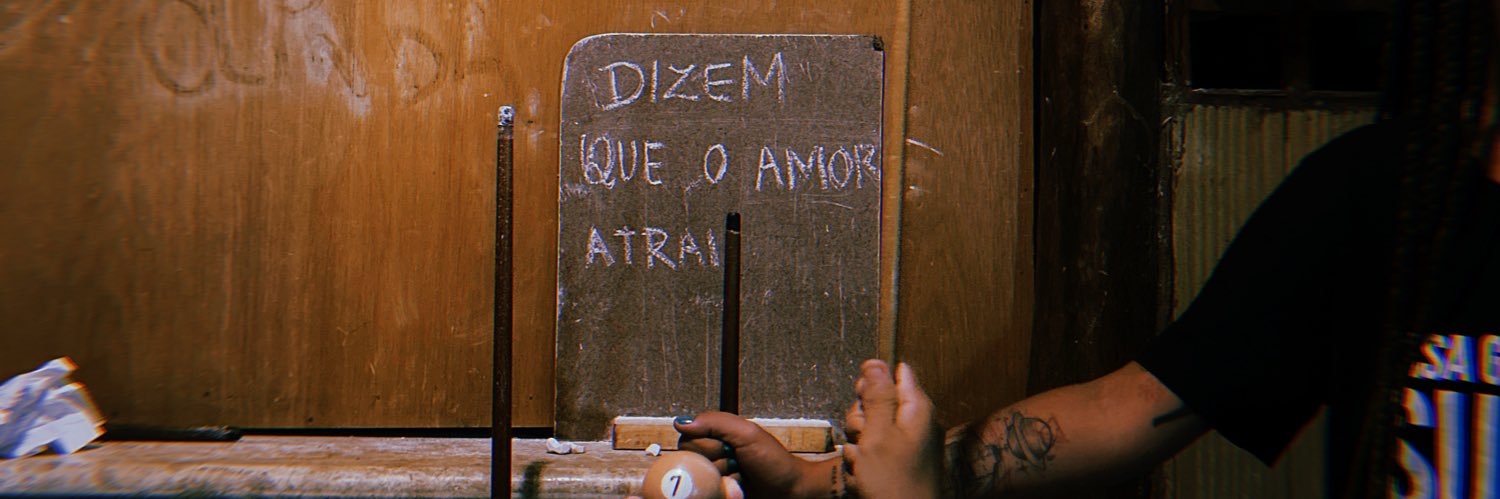 DIZEM"
QUE O AMOR
ATRAI
7